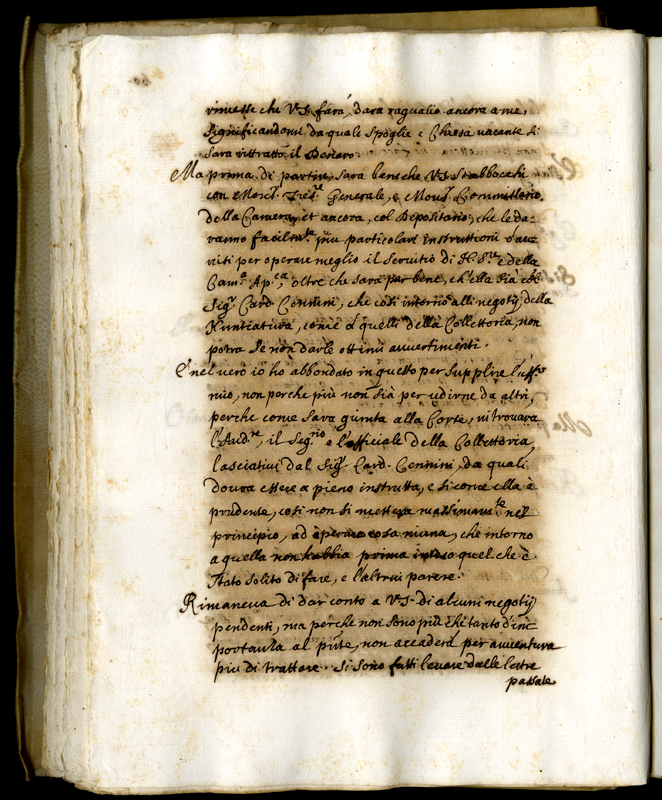 rimesse che V.S. farà, darà raguaglio ancora a me,
significandomi da quale spoglie e Chiesa vacante si
sarà ritratto il Denaro.
Ma prima di partire, sarà bene che V.S. s'abbocchi
con Monsr. Tesre. Generale, e Monsr. Commissario
della Camera, et ancora, col Depositario, che le da-
ranno facilmte. più particolari instruttioni, d'auu
uiti per operare meglio il seruitio di N. Sre. e della
Cama. Apca., oltre che sarà par bene, ch'ella sia col
Sigr. Card. Cennini, che così intorno alli negotij della
Nuntiatura, come à quelli della Collettoria, non
potrà se non darle ottimi auuertimenti.
E nel uero io ho abbondato in questo per supplire l'uffo
mio, non perche più non sia per udirne da altri,
perche come sarà giunta alla Corte, ui trouarà
l'Audre., il Segrio. e l'officiale della Collettoria,
lasciatiui dal Sigr. Card. Cennini, da quali
dourà essere a pieno instrutta, e si come ella è
prudente, così non si metterà massimamte. nel
principio, ad operare cosa niuna, che intorno
a quella non habbia prima inteso quel che è
stato solito di fare, e l'altrui parere.
Rimaneua di dar conto a V.S. di alcuni negotij
pendenti, ma perche non sono più che tanto d'im
portanza al pnte, non accaderà per auuentura
più di trattare. Si sono fatti leuare dalle lettre
passate